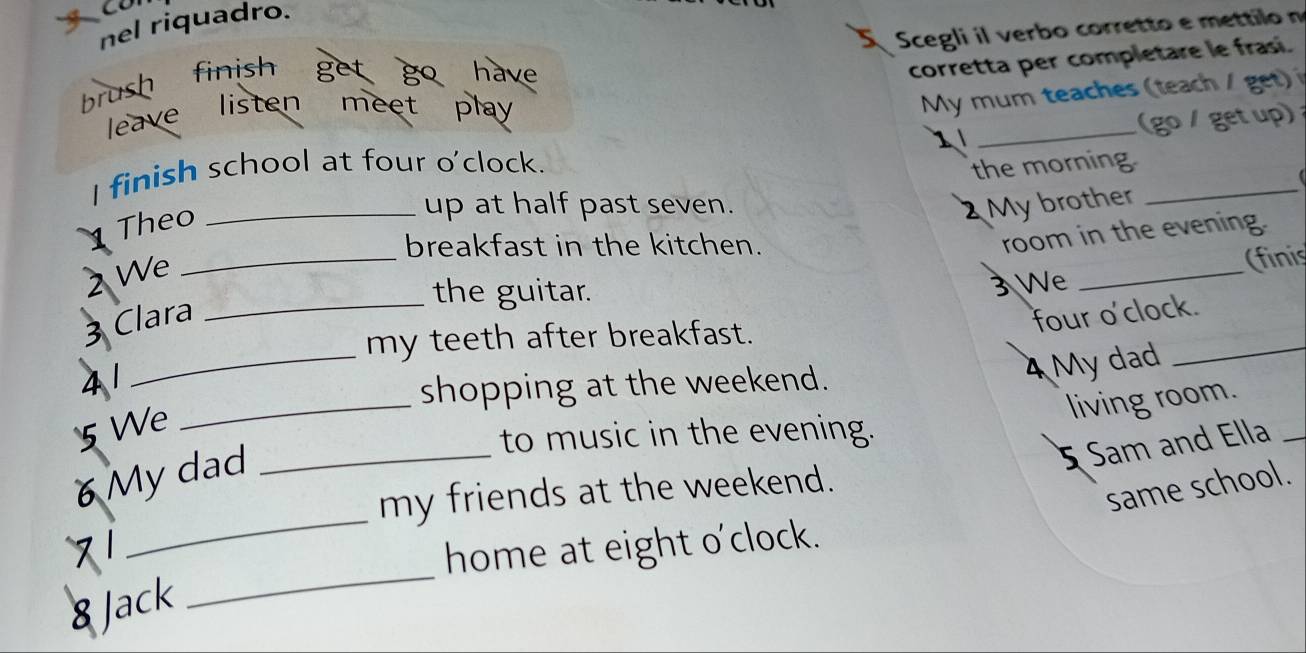 nel riquadro.
brush finish get go have
leave listen meet play
I finish school at four o'clock.
1 Theo ____ up at half past seven.
2 We ____ breakfast in the kitchen.
3 Clara ____ the guitar.
4 I ____ my teeth after breakfast.
5 We ____ shopping at the weekend.
6 My dad ____ to music in the evening.
7 I ____ my friends at the weekend.
8 Jack ____ home at eight o'clock.
5 Scegli il verbo corretto e mettilo n
corretta per completare le frasi.
My mum teaches (teach / get) i
1 I ____ (go / get up)
the morning.
2 My brother ____ (
room in the evening.
3 We ____ (finis
four o'clock.
4 My dad ____
living room.
5 Sam and Ella ____
same school.